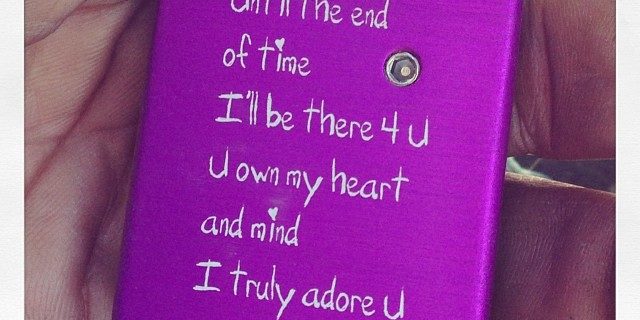 until the end
of time
I'll be there 4 U
U own my heart
and mind
I truly adore U